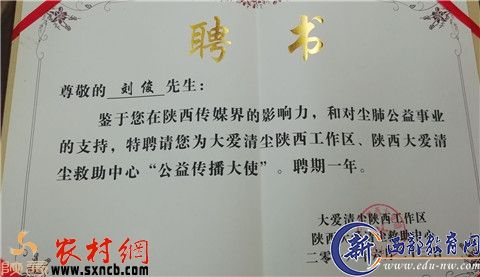 聘 书
尊敬的 刘俊 先生：
鉴于您在陕西传媒界的影响力，和对尘肺公益事业
的支持，特聘请您为大爱清尘陕西工作区、陕西大爱清
尘救助中心“公益传播大使”。聘期一年。
大爱清尘陕西工作区
陕西
尘救助中心
二零
农村網
www.sxncb.com
新
教育网
www.edu-nw.com